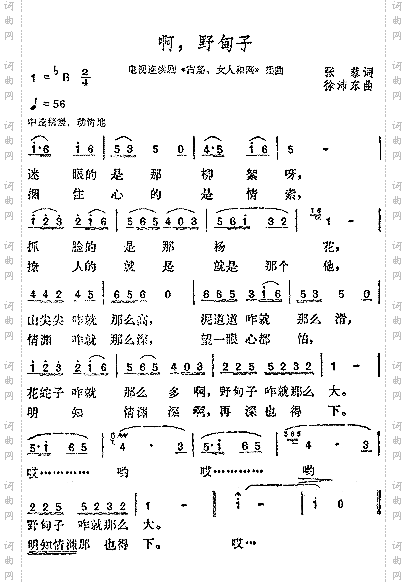 啊，野甸子
1=♭B 2/4
电视连续剧 女人和网 插曲
张 藜 词
徐沛东 曲
♩=56
中速稍慢、动情地
i6 i6 | 5 3 0 | 4·5 i6 | 5 - |
迷 眼的是那 柳 絮呀，
捆 住心的 是情索，
i23 2i6 | 565 403 | 561 32 | 1 - |
抓 脸的是那 杨 花，
撩 人的 就是 就是那个 他，
442 45 | 656 0 | 0565 3i6 | 535 0 |
山尖尖 咋就 那么高， 泥道道 咋就 那么 滑，
情渊 咋就 那么深， 望一眼心都 怕，
i23 2i6 | 565 403 | 225 5232 | 1 - |
花蛇子 咋就 那么 多 啊，野甸子 咋就那么 大。
明知 情渊 深 啊，再深也得 下。
5·i 65 | 4 · 3 | 5·i 65 | 4 · 3 |
哎………… 哟 哎………… 哟
225 5232 | 1 - |
野甸子 咋就那么 大。
明知情渊那 也得 下。 哎…
词曲网
词曲网
词曲网
词曲网
词曲网
词曲网